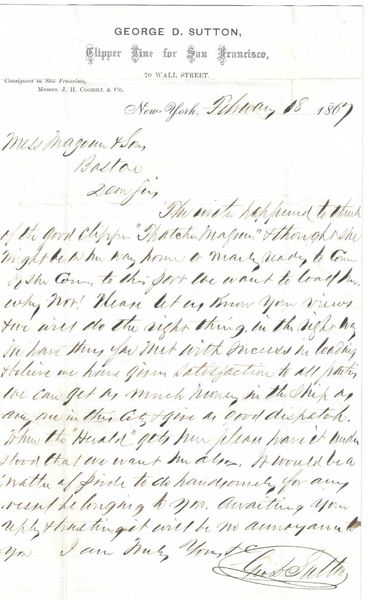 GEORGE D. SUTTON,
Clipper Line for San Francisco,
70 WALL STREET.
Consignees in San Francisco,
Messrs. J. H. COGHILL & CO.
New-York, February 18 1867
Mess Magoun & Son
Boston
Dear Sirs
The writer happened to think
of the good Clipper "Thatcher Magoun" & thought she
might be on her way home or nearly ready to Come
If she Comes to this port we want to load her,
why Not? Please let us Know your views
& we will do the right thing, in the right way
We have thus far met with success in loading
& believe we have given satisfaction to all parties
we can get as much money in the Ship as
any one in this City & give as Good dispatch.
When the "Herald" gets here please have it under
stood that we want her also. It would be a
matter of pride to do handsomely for any
vessel belonging to you. Awaiting your
reply & trusting it will be no annoyance to
you I am Truly Yours
Geo D Sutton